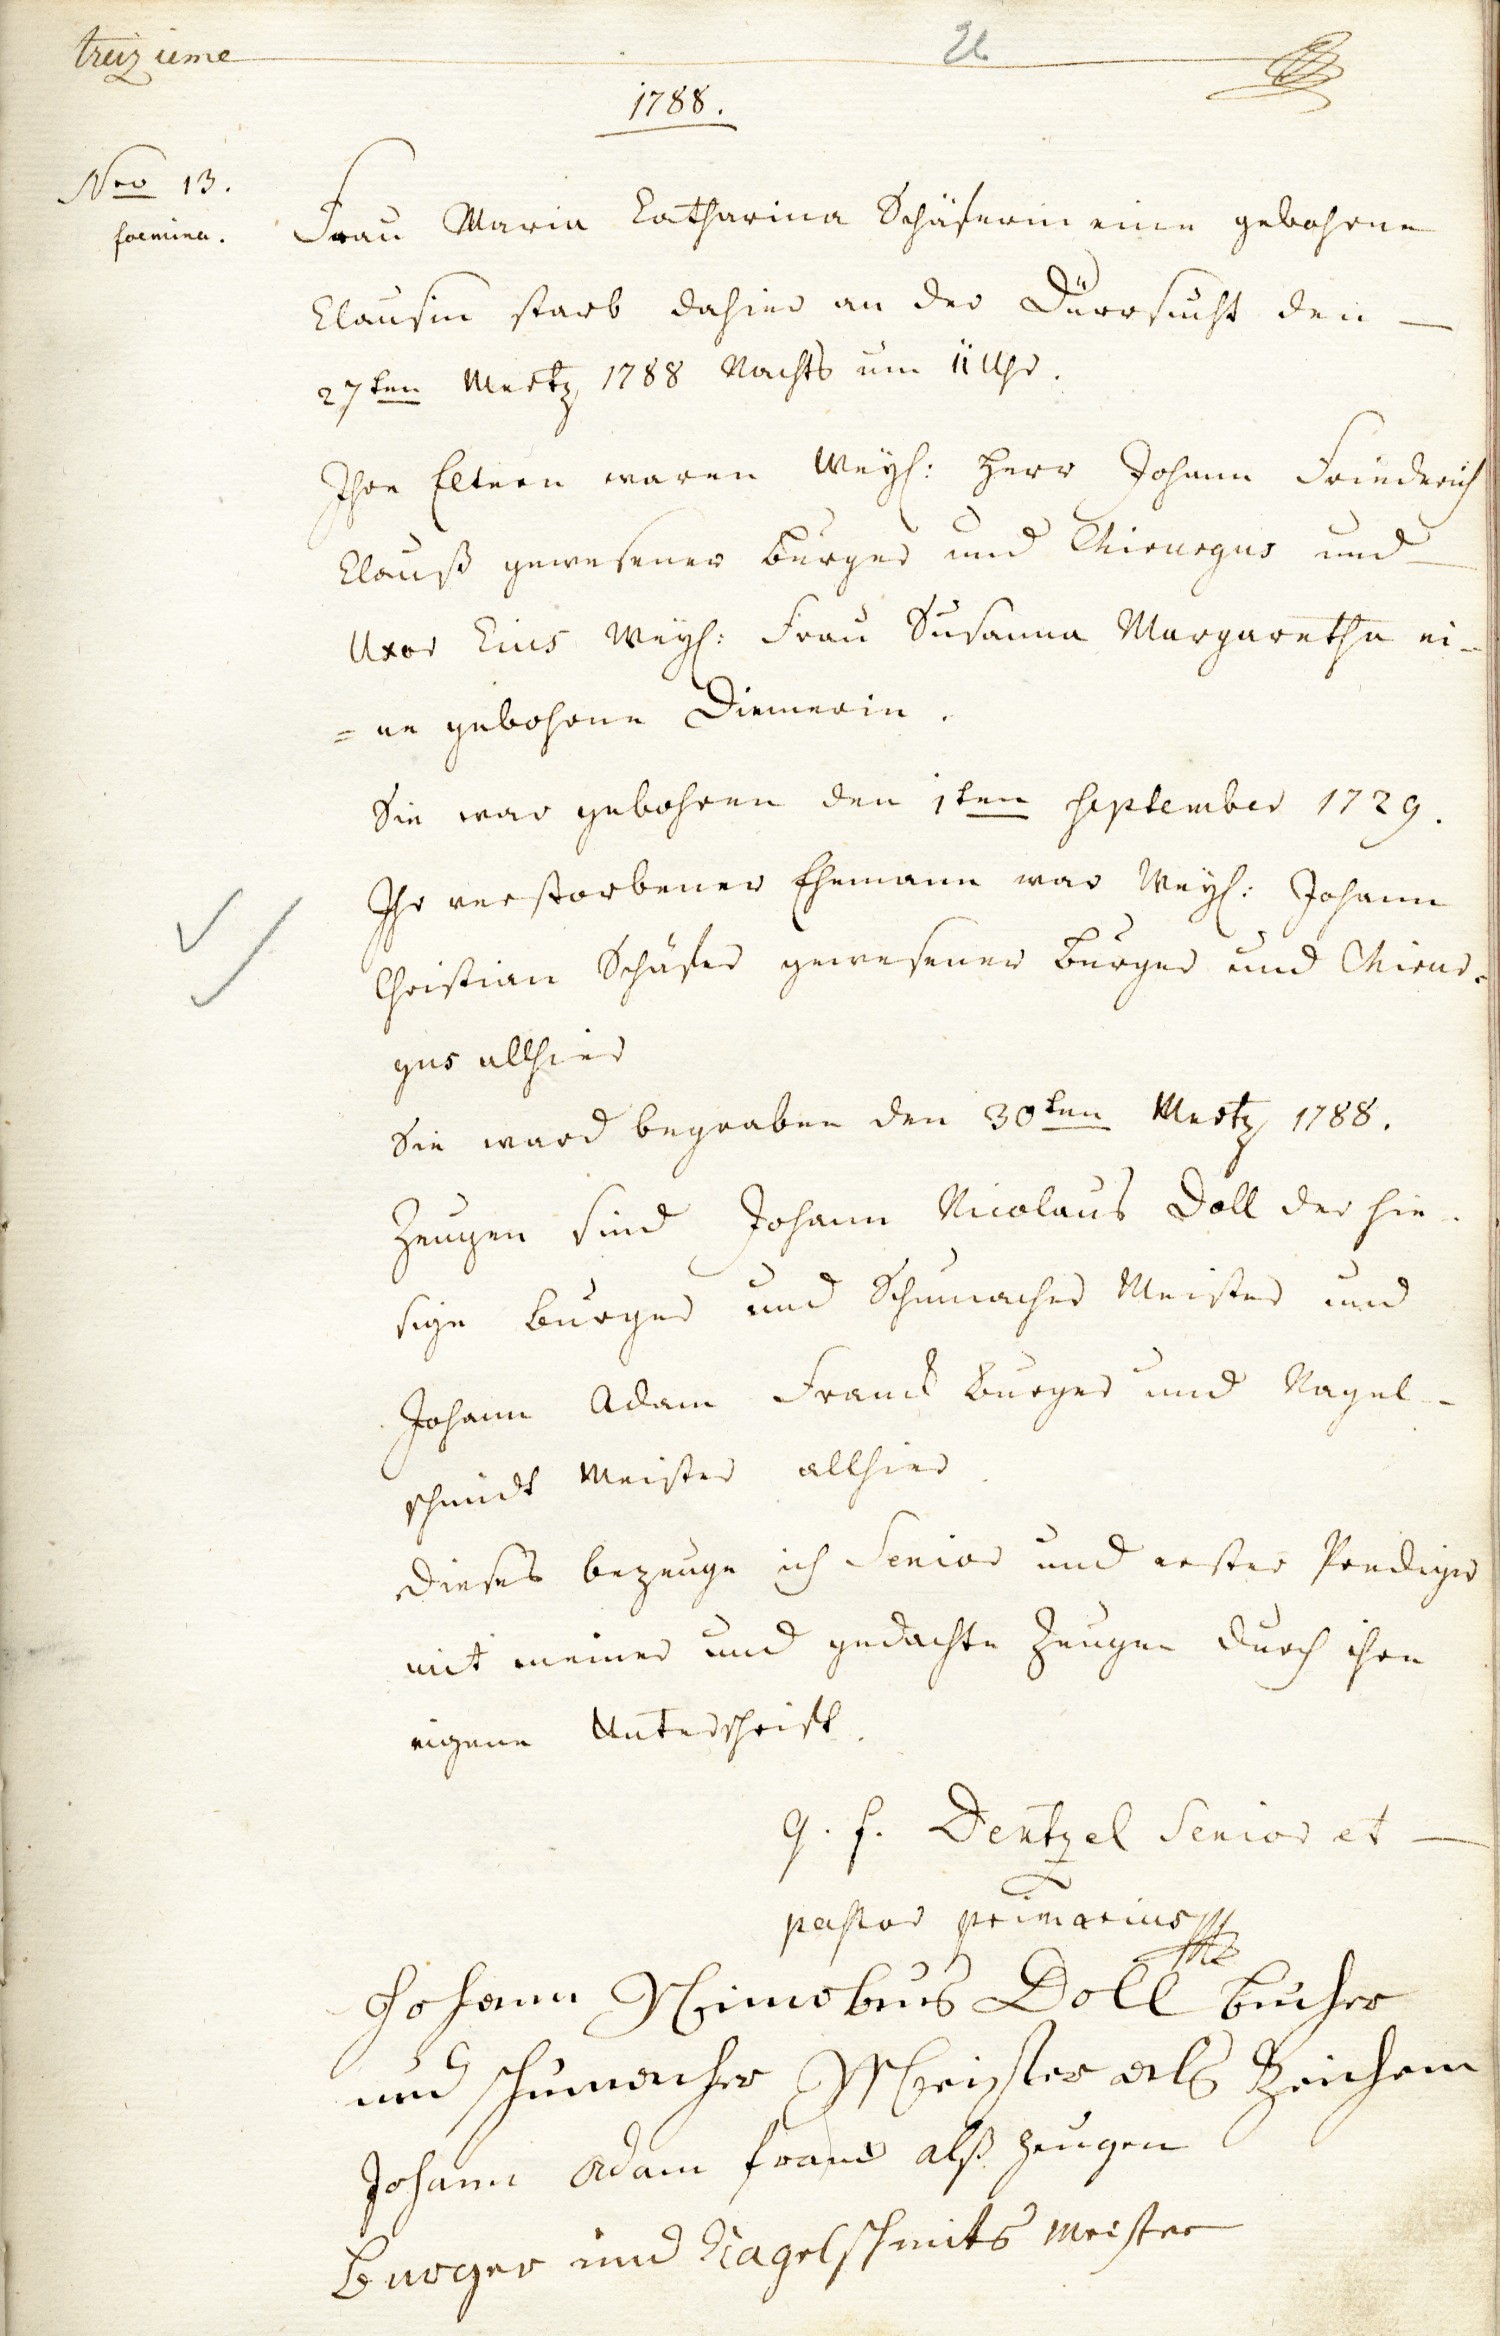 treizieme
26
1788.
Nro 13.
foemina.
Frau Maria Catharina Schäferin eine gebohrne
Clausin starb dahier an der Dürrsucht den —
27ten Mertz 1788 Nachts um 11 Uhr.
Ihre Eltern waren Weyl: Herr Johann Friederich
Clauß gewesener Burger und Chirurgus und —
Uxor Eius Weyl: Frau Susanna Margaretha ei-
= ne gebohrne Diemerin.
Sie war gebohren den 1ten September 1729.
Ihr verstorbener Ehemann war Weyl: Johann
Christian Schäfer gewesener Burger und Chirur-
gus allhier
Sie ward begraben den 30ten Mertz 1788.
Zeugen sind Johann Nicolaus Doll der hie-
sige Burger und Schumacher Meister und
Johann Adam Franck Burger und Nagel-
schmidt Meister allhier.
Dieses bezeuge ich Senior und erster Prediger
mit meiner und gedachte Zeugen durch ihre
eigene Unterschrift.
G. F. Dentzel Senior et —
pastor primarius
Johann Doll
und schumacher Meister als Zeichem
Johann Adam franck alß zeugen
Burger und Nagelschmits meister